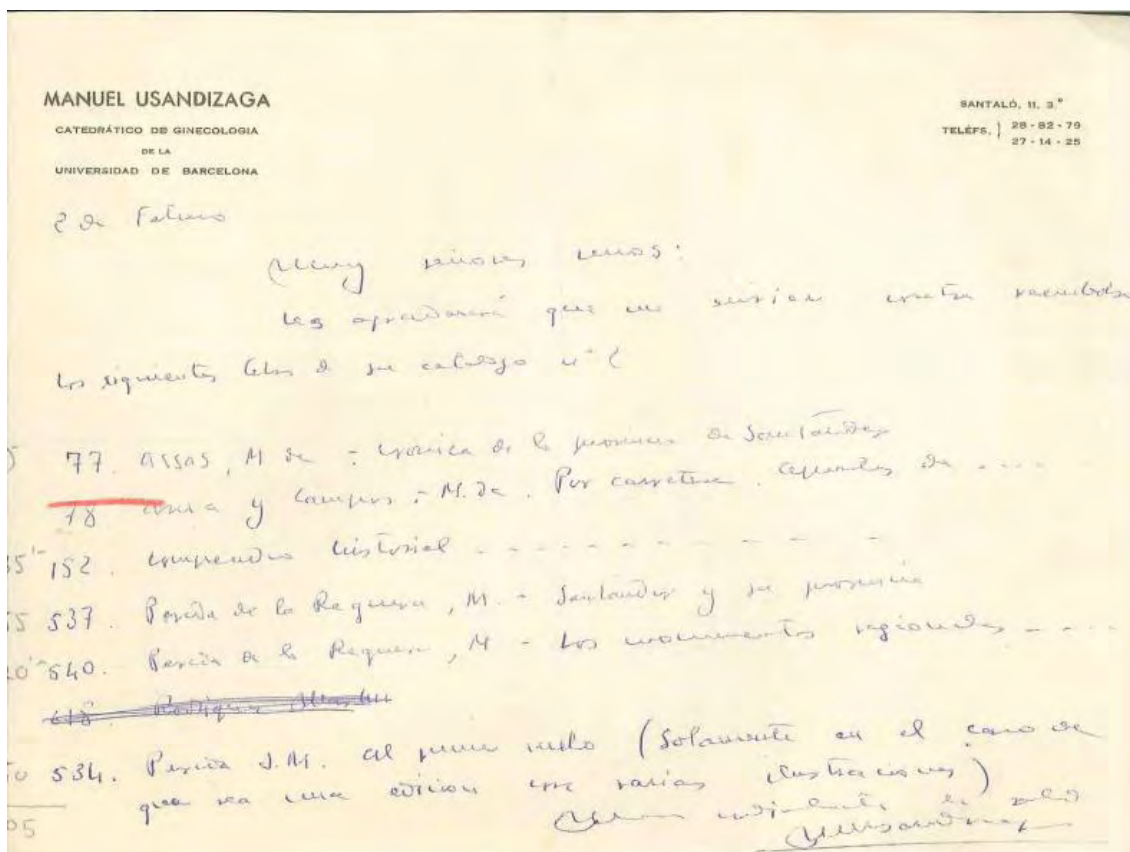 MANUEL USANDIZAGA
CATEDRÁTICO DE GINECOLOGIA
DE LA
UNIVERSIDAD DE BARCELONA
SANTALÓ, 11, 3.º
TELÉFS. } 28-82-79
27-14-25
2 de Febrero
Muy señores mios:
Les agradeceré que me envien contra reembolso
los siguientes libros de su catalogo nº 2
77. ASSAS, M de - Cronica de la provincia de Santander
78 y Campos - M. de. Por carretera. Apuntes de ....
35'- 152. Compendio historial - - - - - - - -
537. Pereda de la Reguera, M. - Santander y su provincia
540. Pereda de la Reguera, M - Los monumentos regionales - - - -
618. Rodriguez
534. Pereda J.M. Al primer vuelo (Solamente en el caso de
que sea una edicion con varias ilustraciones)
les saluda
MUsandizaga